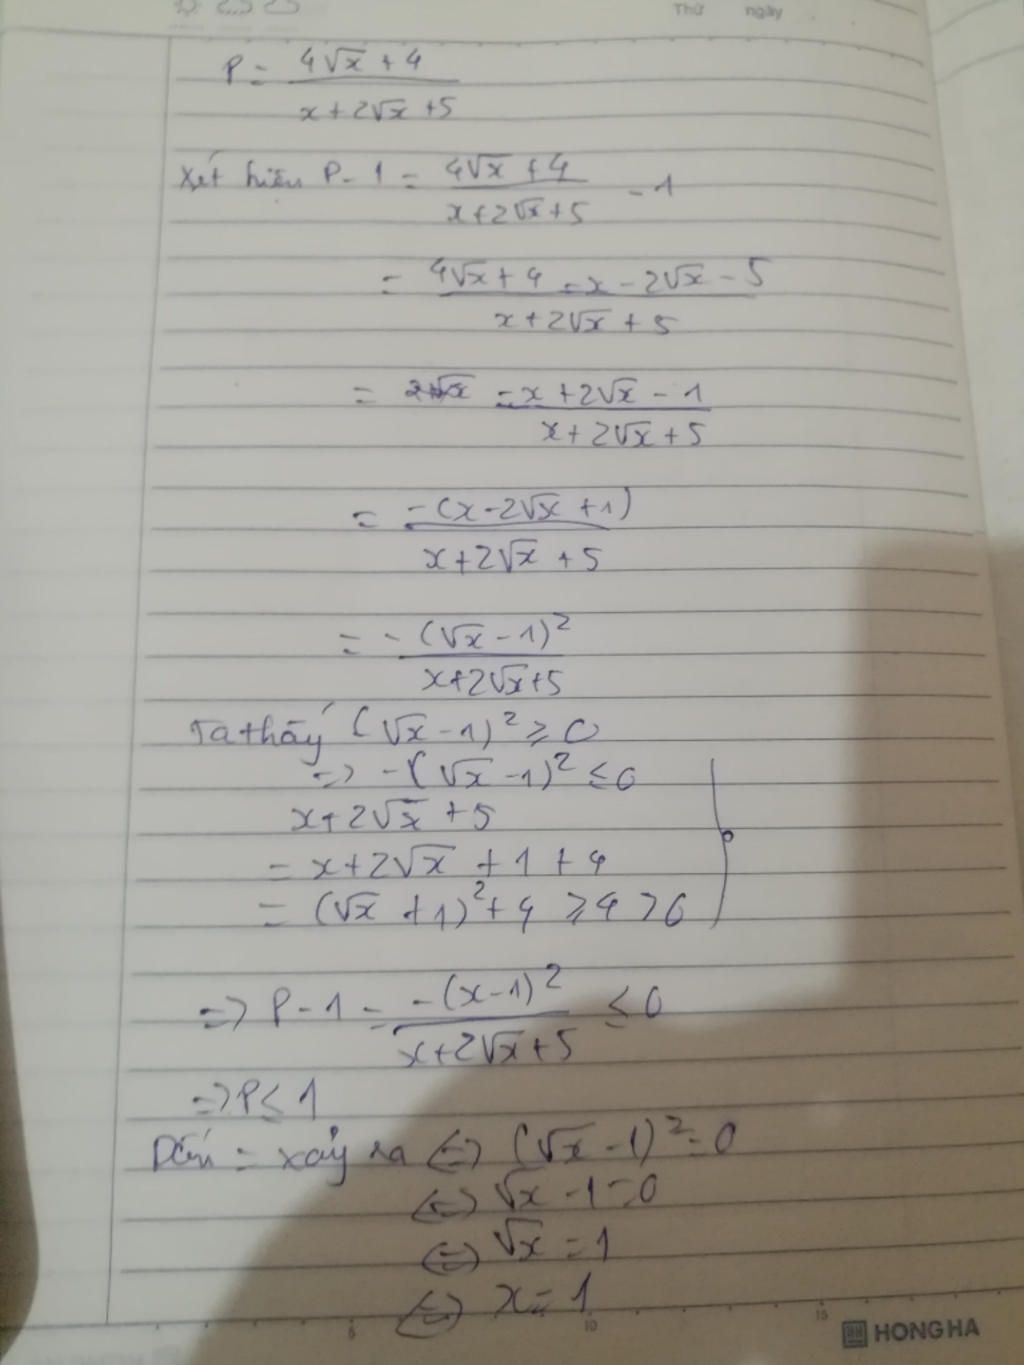 Thứ ngày
P = 4√x + 4 / x + 2√x + 5
Xét hiệu P - 1 = 4√x + 4 / x + 2√x + 5 - 1
= 4√x + 4 - x - 2√x - 5 / x + 2√x + 5
= -x + 2√x - 1 / x + 2√x + 5
= -(x - 2√x + 1) / x + 2√x + 5
= -(√x - 1)² / x + 2√x + 5
Ta thấy (√x - 1)² ≥ 0
=> -(√x - 1)² ≤ 0
x + 2√x + 5
= x + 2√x + 1 + 4
= (√x + 1)² + 4 ≥ 4 > 0
=> P - 1 = -(x - 1)² / x + 2√x + 5 ≤ 0
=> P ≤ 1
Dấu = xảy ra <=> (√x - 1)² = 0
<=> √x - 1 = 0
<=> √x = 1
<=> x = 1
5 10 15
HONG HA